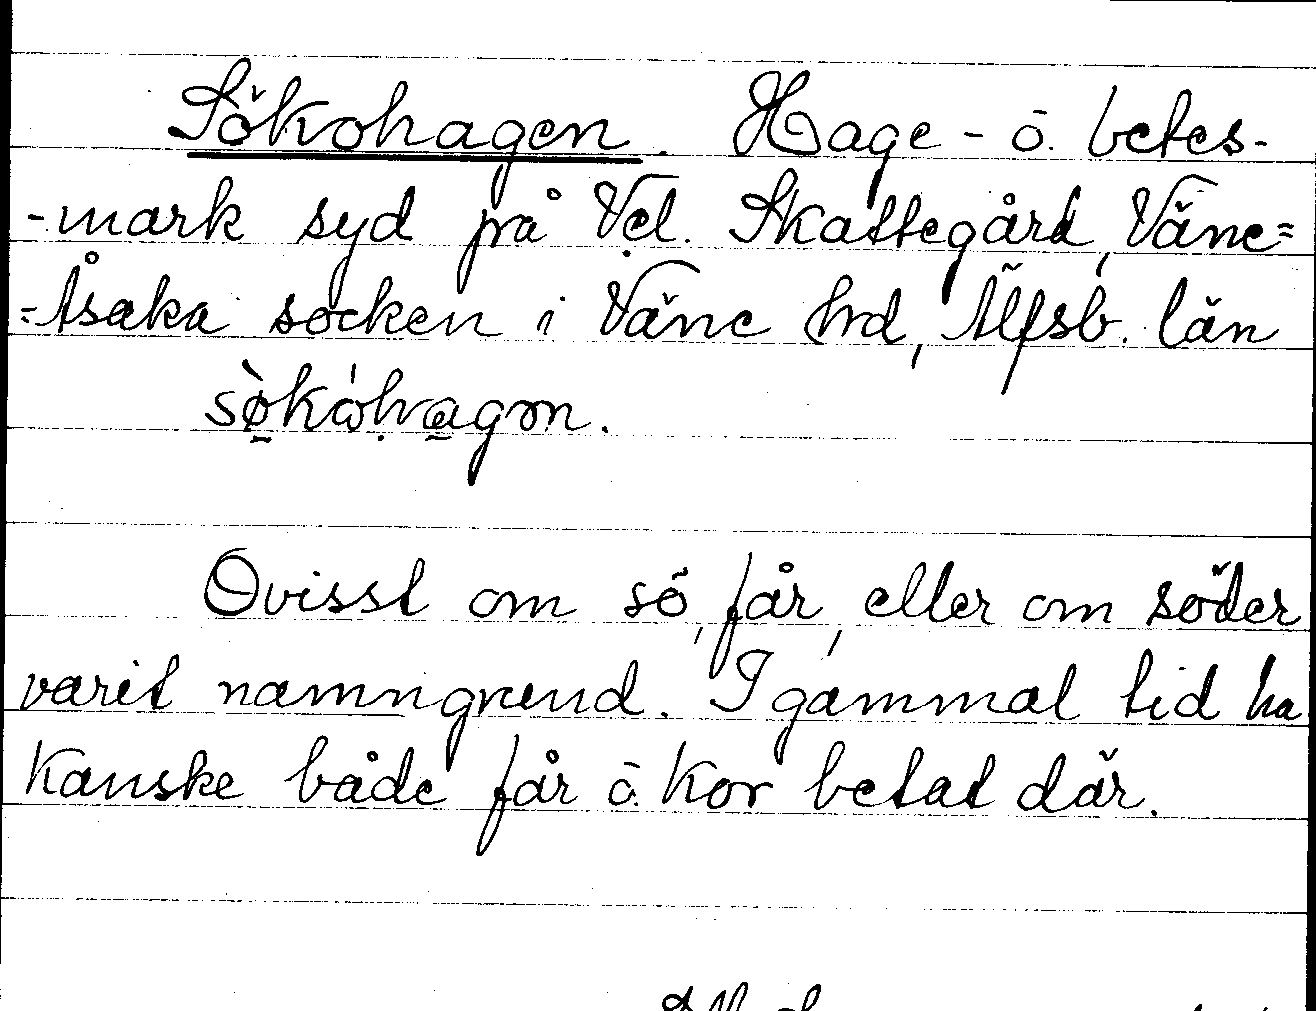 Sökohagen. Hage- ō. betes-
-mark syd på Vel. Skattegård, Väne=
=Åsaka socken i Väne hrd, Älfsb. län
sö̀kóhagɷn.
Ovisst om sö, får, eller om söder
varit namngrund. I gammal tid ha
kanske både får ō. kor betat där.